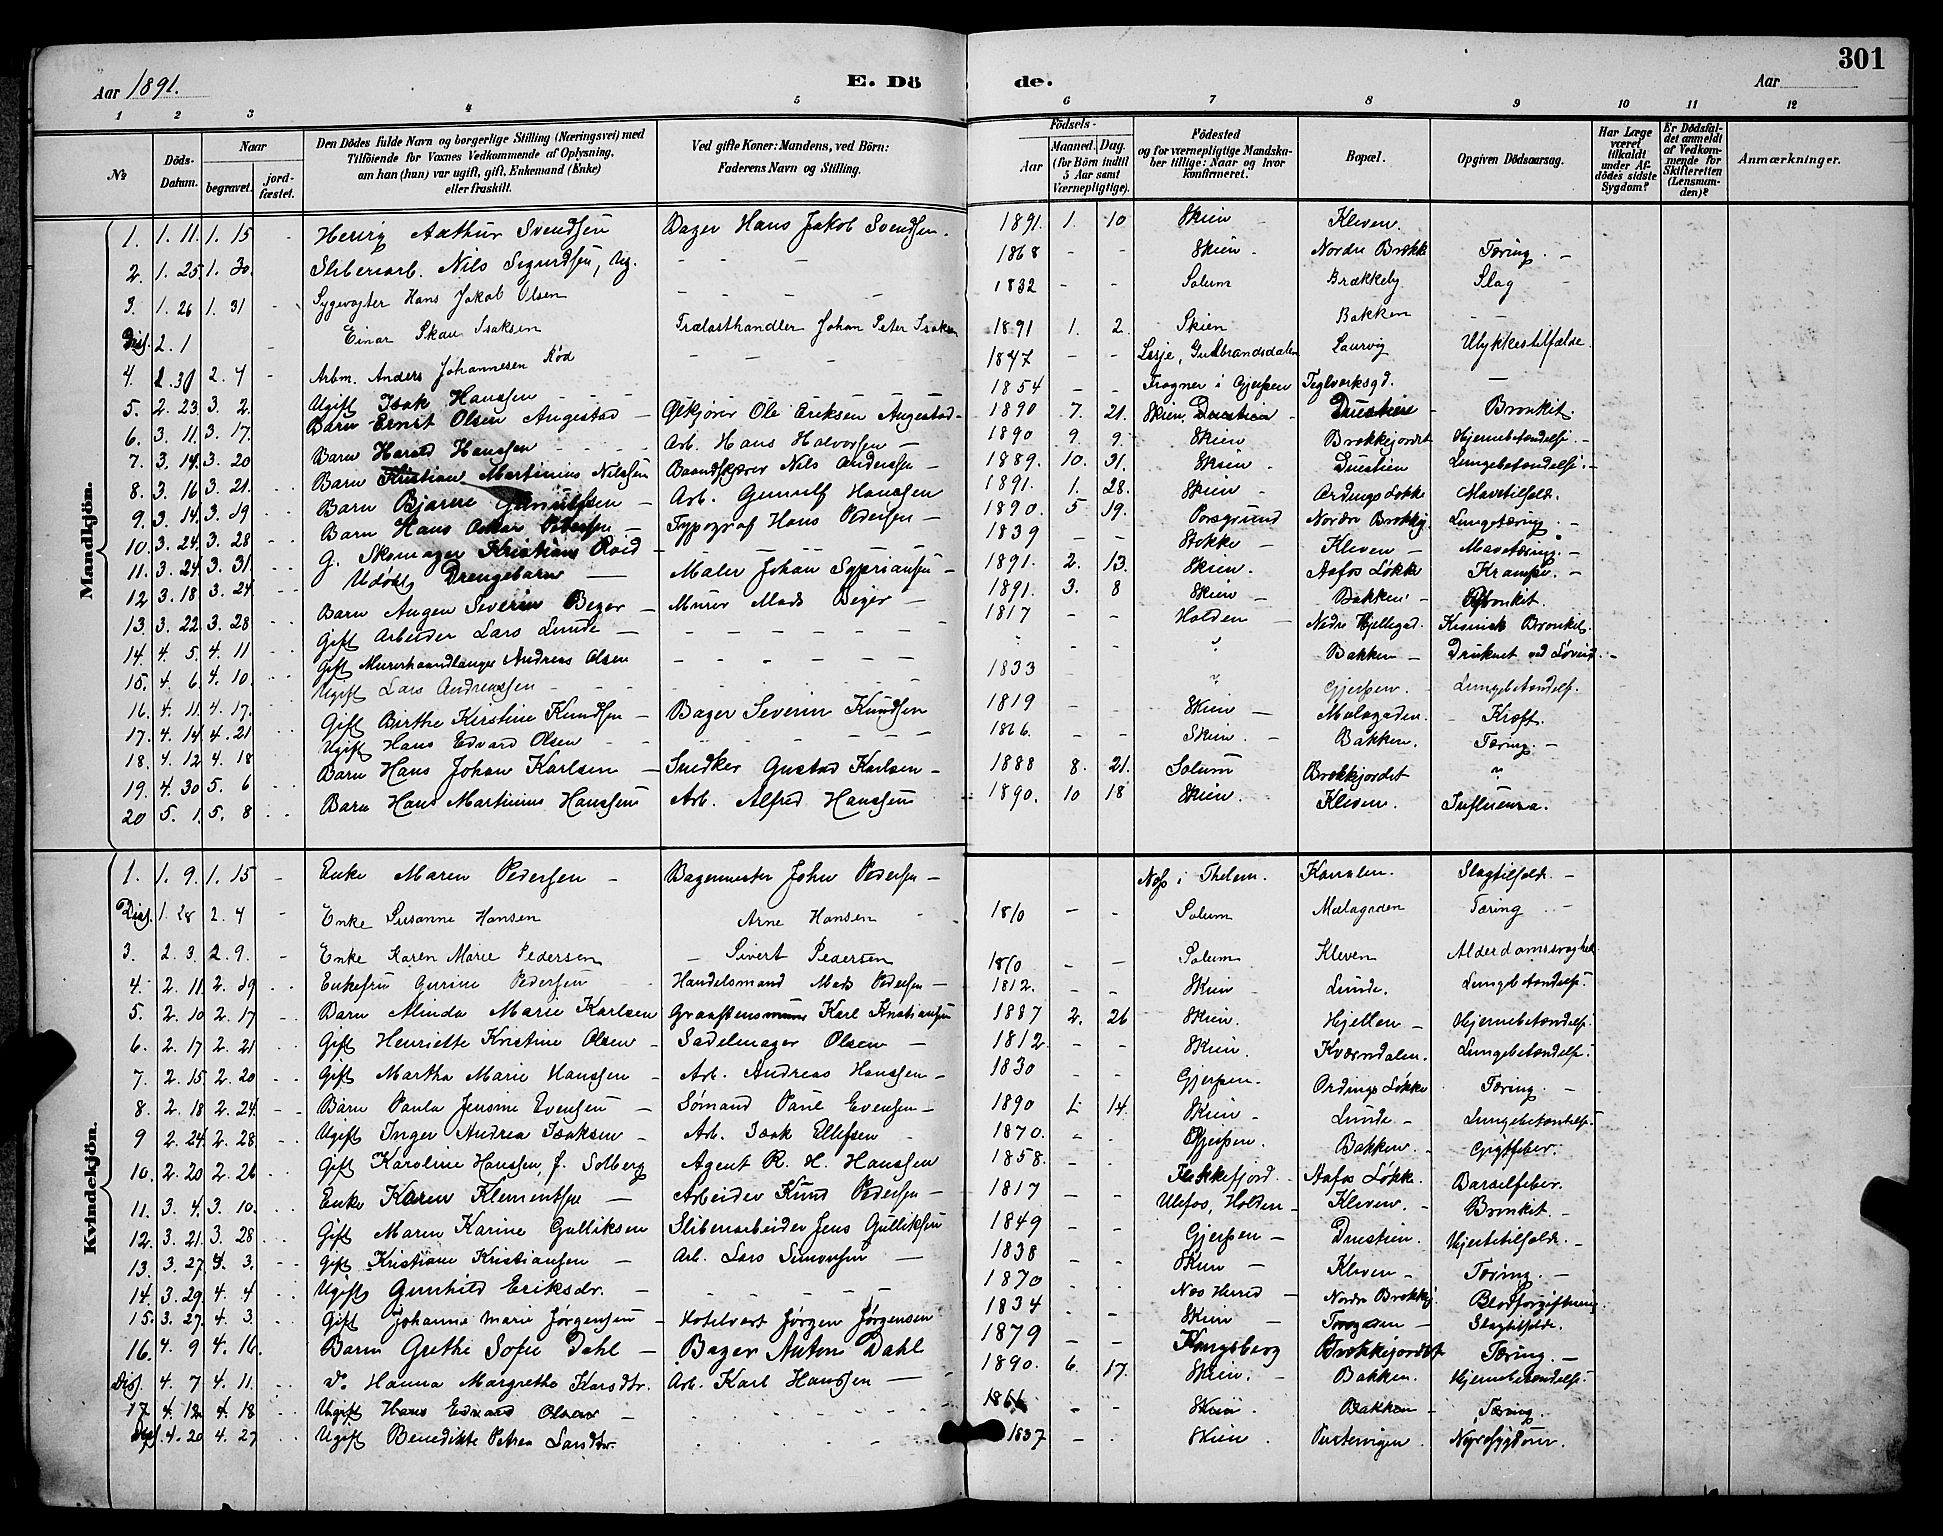 301
Aar 1891. E. Dö de. Aar
1 2 3 4 5 6 7 8 9 10 11 12
№ Döds-Datum. Naar begravet. jord-fæstet. Den Dödes fulde Navn og borgerlige Stilling (Næringsvei) med Tilföiende for Voxnes Vedkommende af Oplysning, om han (hun) var ugift, gift, Enkemand (Enke) eller fraskilt. Ved gifte Koner: Mandens, ved Börn: Faderens Navn og Stilling. Födsels- Aar Maaned. Dag. (for Börn indtil 5 Aar samt Værnepligtige). Födested og for værnepligtige Mandskaber tillige: Naar og hvor konfirmeret. Bopæl. Opgiven Dödsaarsag. Har Læge været tilkaldt under Afdödes sidste Sygdom? Er Dödsfaldet anmeldt af Vedkommende for Skifteretten (Lensmanden)? Anmærkninger.
Mandkjön.
1. 1. 11. 1. 15 - Henry Arthur Svendsen Bager Hans Jakob Svendsen. 1891. 1. 10 Skien - Kleven.
2. 1. 25. 1. 30. - Sliberiarb. Nils Sigurdsen, Ug. - - 1868 - - Skien. Nordre Brække Tæring. -
3. 1. 26 1. 31 - Sygevogter Hans Jakob Olsen - - - 1832 - - Solum Brækkeby Slag
Diss. 2. 1 - Einar Skau Isaksen Trælasthandler Johan Peter Isaksen 1891 1. 2. Skien Bakken - -
4. 2. 4 - Arbm. Anders Johannesen Rød - - - 1847 - - Lesje, Gudbrandsdalen Laurvig Ulykkestilfælde.
5. 2. 23. 3. 2. Ugift Isak Hanssen - - - 1854 - - Frogner i Gjerpen Teglverksgd. -
6. 3. 11. 3. 17. Barn Ernst Olsen Augestad - Ølkjører Ole Eriksen Augestad - 1890 7. 21. Skien, Duestien - Duestien - Bronkit.
7. 3. 14. 3. 20 Barn Harald Hanssen - Arb. Hans Halvorsen - 1890 9. 9. Skien Brækkejordet Hjernebetændelse. -
8. 3. 16 3. 21. Barn Kristian Martinius Nilssen Nils Anderssen - 1889. 10. 31. Skien. Duestien Lungebetændelse. -
9. 3. 14. 3. 19 Barn Bjarne - Arb. Gunulf Hanssen 1891. 1. 28. Skien - Ordings Løkke Mavetilfælde.
10. 3. 24. 3. 28 Barn Hans Oskar Pedersen - Typograf Hans Pedersen - 1890. 5 19. Porsgrund Nordre Brækkej. Lungetæring. -
11. 3. 24. 3. 31. G. Skomager Kristians Roid - - - 1839 - - Stokke - Kleven - Mavetæring. -
12. 3. 18 3. 24. Udøbt Drengebarn - Maler Johan Syprianssen - 1891. 2. 13. Skien. Aafos Løkke Krampe. -
13. 3. 22 3. 28 Barn Severin Beyer - Murer Mads Beyer - 1891 3. 8 Skien - Bakken. - Bronkit.
14. 4. 5. 4. 11 Gift Arbeider Lars Lunde - - - 1817 - - Holden - Nedre Hjellegad. Kronisk Bronkit.
15. 4. 6. 4. 10. Gift Murerhaandlanger Andreas Olsen - - - - - - " Bakken - Druknet ved Løveid. -
16. 4. 11. 4. 17. Ugift Lars Andreassen - - - 1833 - " Gjerpen. - Lungebetændelse.
17. 4. 14. 4. 21 Gift Birthe Kirstine Knudsen - Bager Severin Knudsen 1819 - Skien - Mælagaden. - Kræft.
18. 4. 12 4. 18 Ugift Hans Edvard Olsen - - - - 1866. - - Skien. - Bakken. - Tæring. -
19. 4. 30 5. 6 Barn Hans Johan Karlsen - Snedker Gustad Karlsen - 1888 8. 21. Solum Brækkejordet "
20 5. 1. 5. 8 Barn Hans Martinius Hanssen Arb. Alfred Hanssen 1890. 10 18 Skien. Kleven. Influenza.
Kvindekjön.
1. 1. 9. 1. 15 - Enke Maren Pedersen - Bagermester John Pedersen - i Thelem. Kanalen. Slagtilfælde. -
Diss. 1. 28 2. 4 - Enke Susanne Hansen Arne Hansen - 1810 - - Solum Mælagaden Tæring -
3. 2. 3. 2. 9. - Enke Karen Marie Pedersen - Sivert Pedersen 1810 - - Solum Kleven Alderdomssvaghed
4. 2. 11. 2. 19 Enkefru Gurine Pedersen Handelsmand Mads Pedersen - 1812. - - Skien - Lunde. Lungebetændelse.
5. 2. 10 2. 17 Barn Alinda Marie Karlsen Karl Kristiansen 1887 2. 26 Skien. Hjellen - Hjernebetændelse.
6. 2. 17 2. 21 Gift Henriette Kristine Olsen - Sadelmager Olsen - 1812 - - Skien. Kværndalen. Lungebetændelse.
7. 2. 15 2. 20 Gift Martha Marie Hanssen - Arb. Andreas Hanssen - 1830 - - Gjerpen. Ordings Løkke Tæring. -
8 2. 18 2. 24. - Barn Paula Jensine Evensen - Sømand Paul Evensen - 1890 14. Skien - Lunde - Lungebetændelse.
9 2. 24. 2. 28 Ugift Inger Andrea Isaksen - Arb. Isak Ellefsen - 1870. - - Gjerpen. Bakken. - Gigtfeber.
10. 2. 20 2. 26 Gift Karoline Hanssen f. Solberg Agent R. H. Hanssen 1858. - - Flekkefjord. - Aafos Løkke. Barselfeber.
11. 3. 4. 3. 10. Enke Karen Klementsen - Arbeider Knud Pedersen - 1817 - - Ulefos, Holden - Kleven. - Bronkit. -
12. 3. 21. 3. 28 Gift Maren Karine Gulliksen Sliberiarbeider Jens Gulliksen 1849 - - Gjerpen - Duestien. Hjertetilfælde. -
13. 3. 27. 4. 3. Gift Kristiane Kristiansen - Arb. Lars Simonsen - 1838 - - Skien - Kleven - Tæring. -
14. 3. 29. 4. 4 Ugift Gunhild Eriksdr. - - - 1870 - - Næs Herred - Nordre Brækkej. Blodforgiftning.
15. 3. 27. 4. 3. Gift Johanne Marie Jørgensen - Hotelvert Jørgen Jørgensen 1834 - - Skien - - Slagtilfælde.
16. 4. 9 4. 16. Barn Grethe Sofie Dahl - Bager Anton Dahl 1879 - - Kongsberg Brækkejordet Tæring. -
Diss. 4. 7 4. 11. Do Hanna Margrethe Karsdtr. Arb. Karl Hanssen - 1890. 6. 17. Skien. - Bakken. Hjernebetændelse.
17 4. 12 4. 18 Ugift Hans Edvard Olsen - 1866 - - Skien - Bakken - Tæring.
Diss. 4. 20 4. 27 Ugift Benedikte Petrea Larsdtr. 1837 - - Skien. Pustervigen. Nyresygdom.